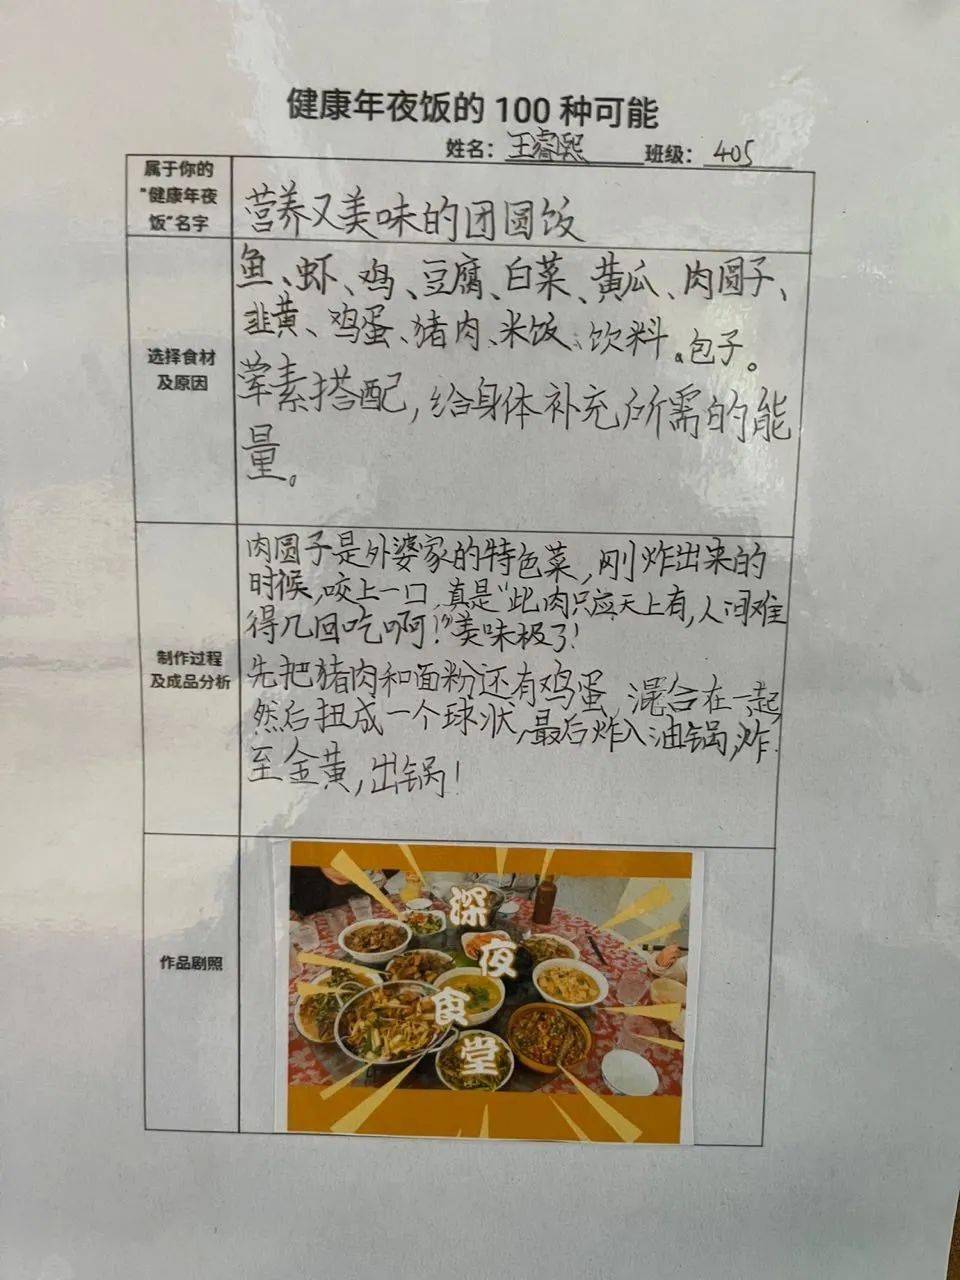 健康年夜饭的 100 种可能
姓名：王睿熙 班级：405
属于你的
“健康年夜
饭”名字
营养又美味的团圆饭
选择食材
及原因
鱼、虾、鸡、豆腐、白菜、黄瓜、肉圆子、
韭黄、鸡蛋、猪肉、米饭、饮料。包子。
荤素搭配,给身体补充所需的能
量。
制作过程
及成品分析
肉圆子是外婆家的特色菜,刚炸出来的
时候,咬上一口,真是“此肉只应天上有,人间难
得几回吃啊!”美味极了!
先把猪肉和面粉还有鸡蛋,混合在一起,
然后扭成一个球状,最后炸入油锅,炸
至金黄,出锅!
作品剧照
深
夜
食
堂